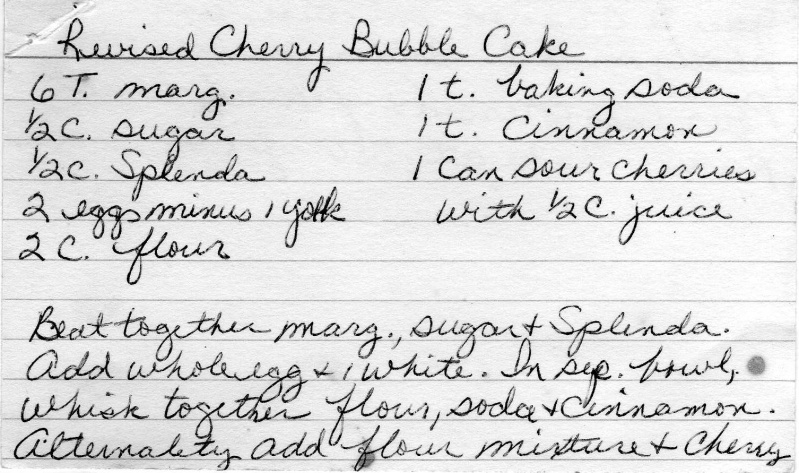 Revised Cherry Bubble Cake
6 T. marg.
1/2 C. sugar
1/2 C. Splenda
2 eggs minus 1 yolk
2 C. flour
1 t. baking soda
1 t. Cinnamon
1 Can sour cherries
with 1/2 C. juice
Beat together marg., sugar & Splenda.
Add whole egg & 1 white. In sep. bowl,
whisk together flour, soda & cinnamon.
Alternately add flour mixture & cherry